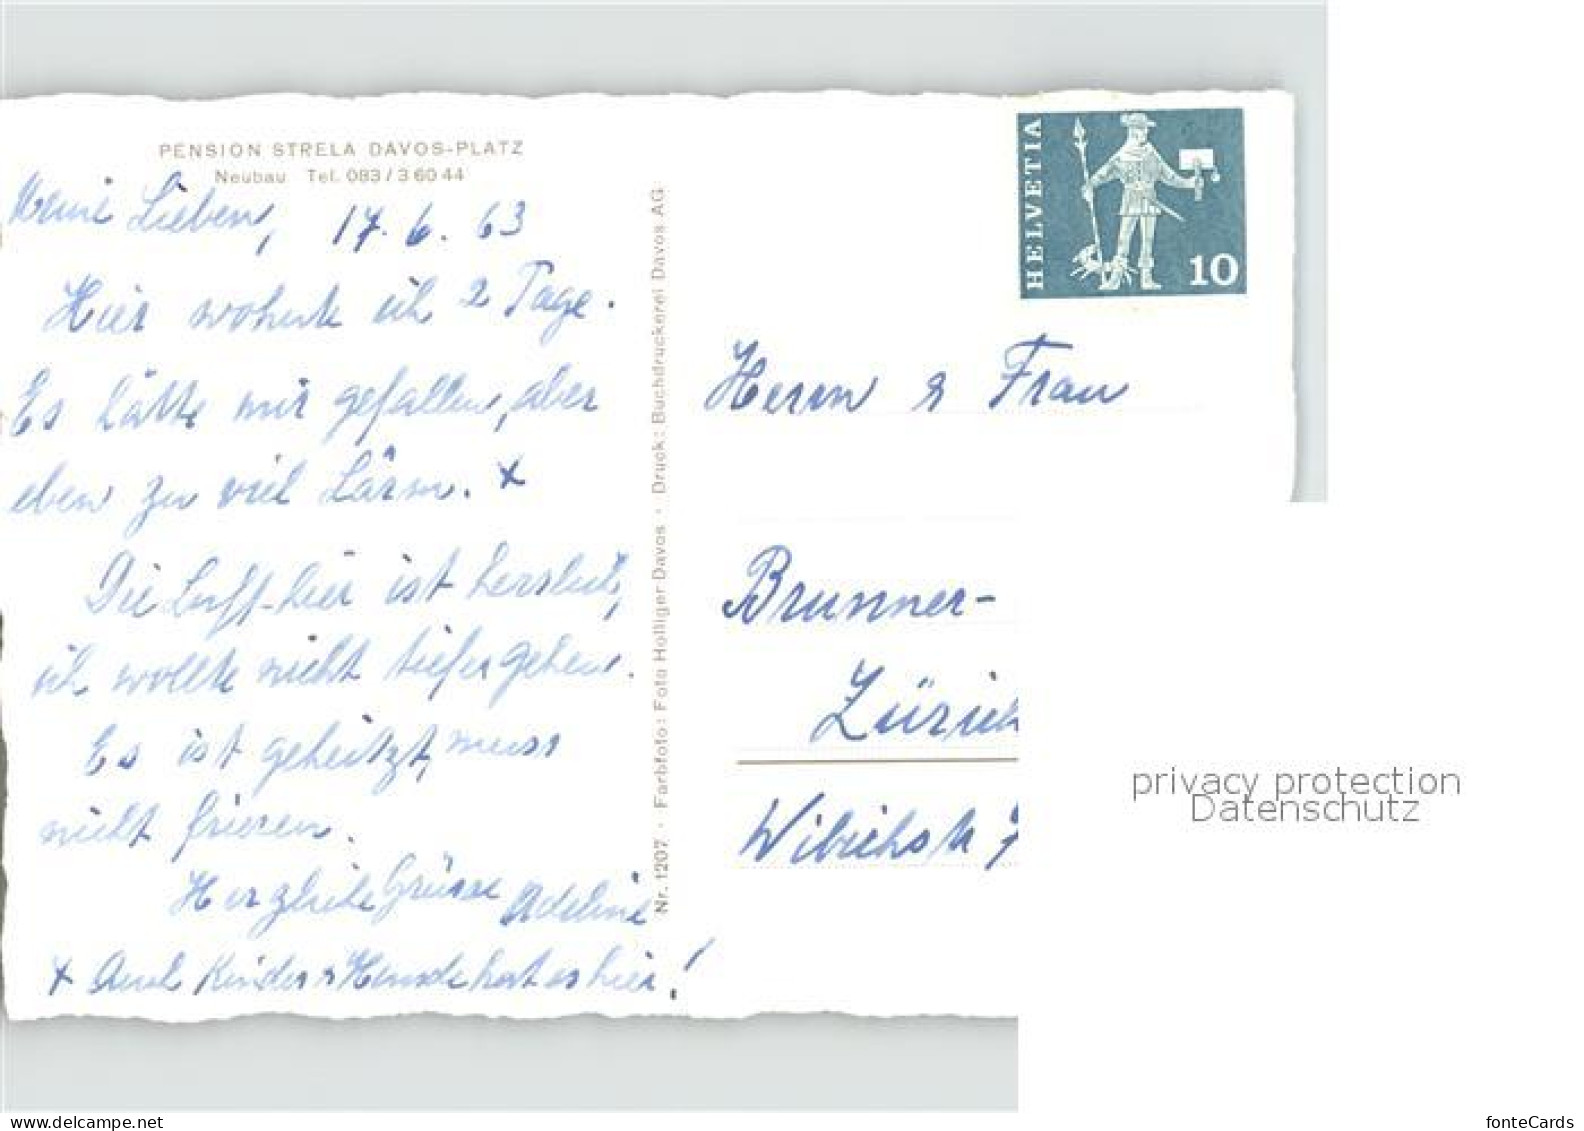 PENSION STRELA DAVOS-PLATZ
Neubau Tel. 083 / 3 60 44
Meine Lieben, 17. 6. 63
Hier wohnte ich 2 Tage.
Es hätte mir gefallen, aber
eben zu viel Lärm. x
Die Luft hier ist herrlich,
ich wollte nicht tiefer gehen.
Es ist geheitzt, muss
nicht frieren.
Herzliche Grüsse Adeline
x Auch Kinder & Hunde hat es hier!
Nr. 1207 · Farbfoto: Foto Holliger Davos · Druck: Buchdruckerei Davos AG
HELVETIA
10
Herrn & Frau
Brunner-
Zürich
privacy protection
Datenschutz
fonteCards